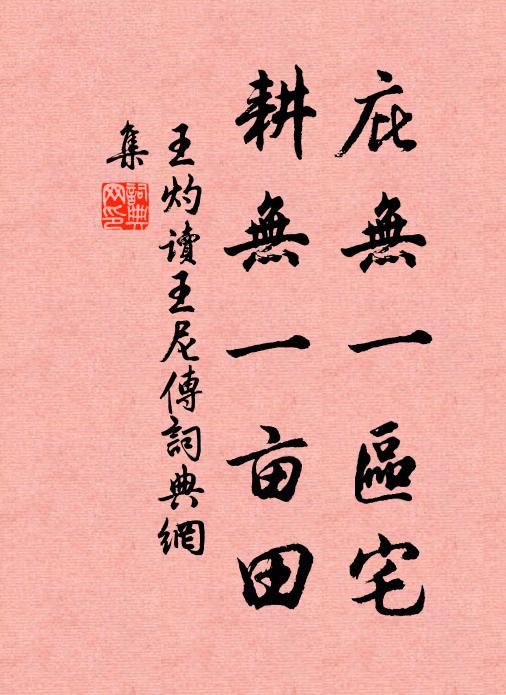 庇無一區宅
耕無一亩田
王灼讀王尼傳詞典網
集
詞典网印